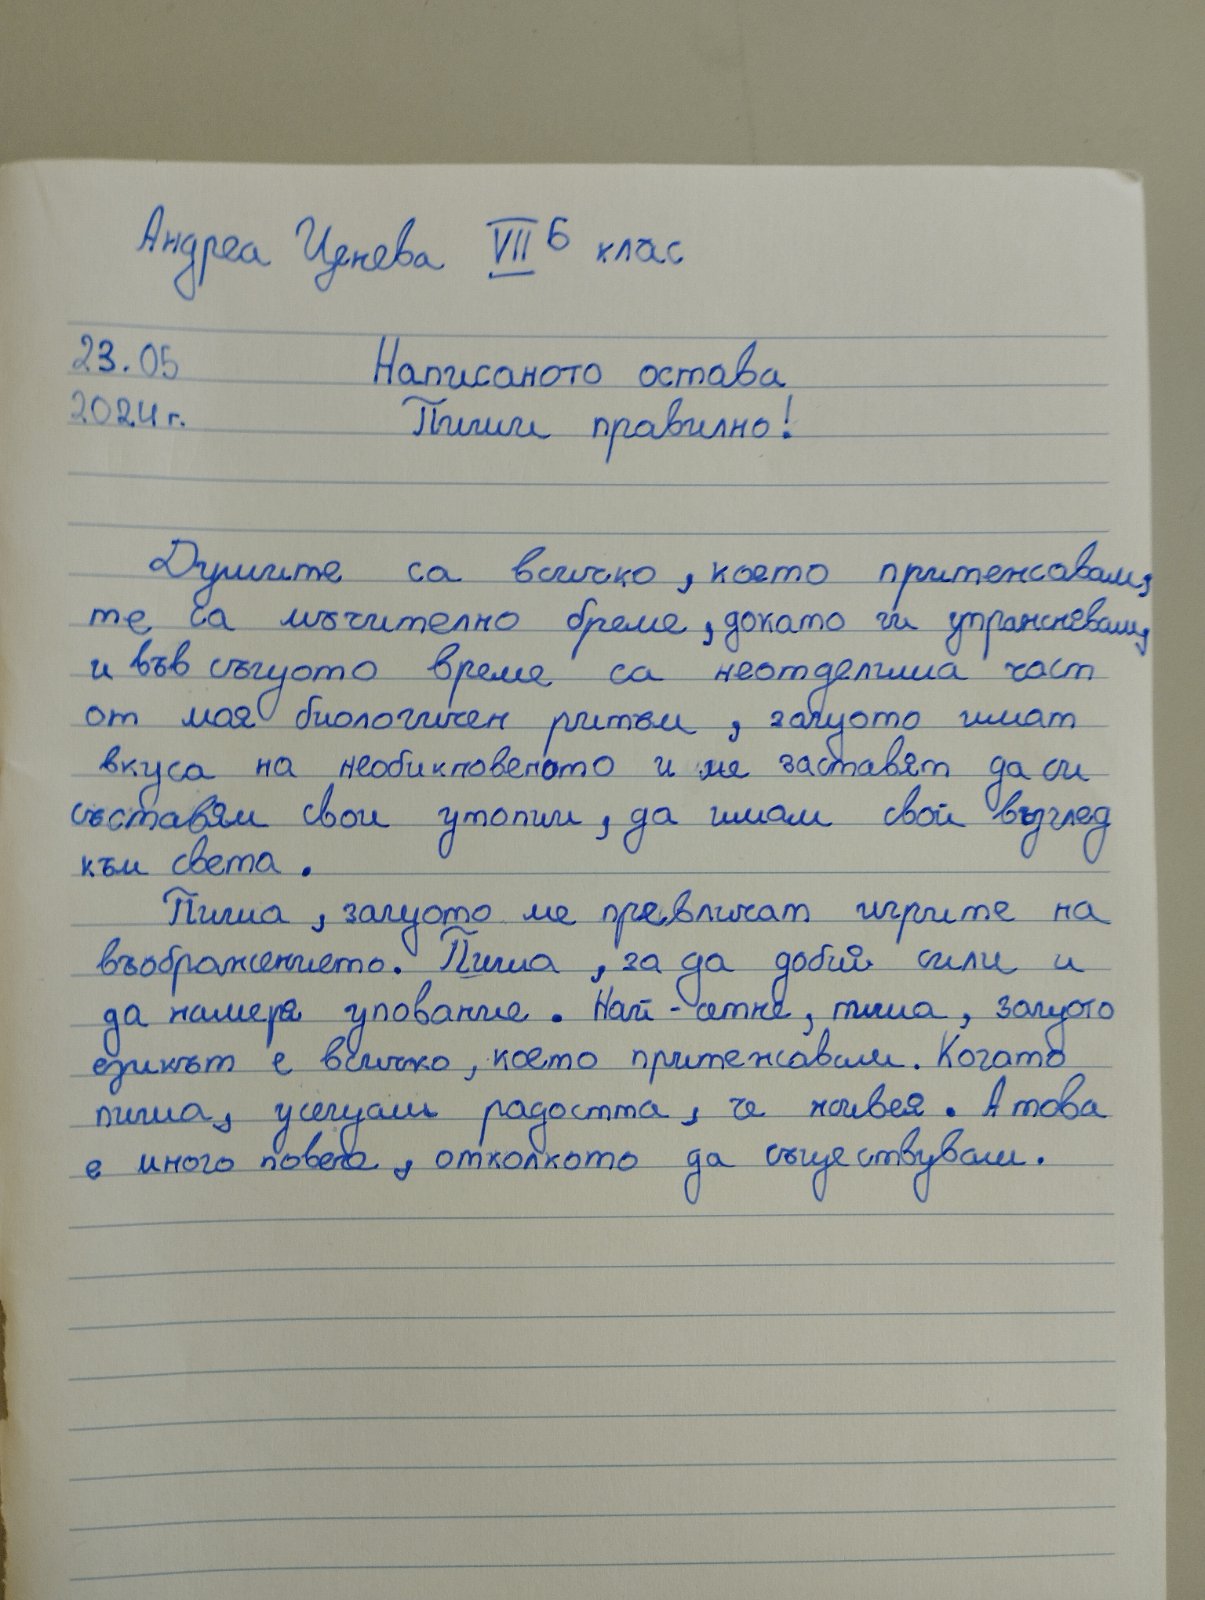 Андреа Ценева VII б клас
23.05 Написаното остава
2024 г. Пиши правилно!
Думите са всичко, което притежавам,
те са мъчително бреме, докато ги упражнявам,
и във същото време са неотделима част
от моя биологичен ритъм, защото имат
вкуса на необикновеното и ме заставят да си
съставям свои утопии, да имам свой възглед
към света.
Пиша, защото ме превличат игрите на
въображението. Пиша, за да добия сили и
да намеря упование. Най-сетне, пиша, защото
езикът е всичко, което притежавам. Когато
пиша, усещам радостта, че живея. А това
е много повече, отколкото да съществувам.